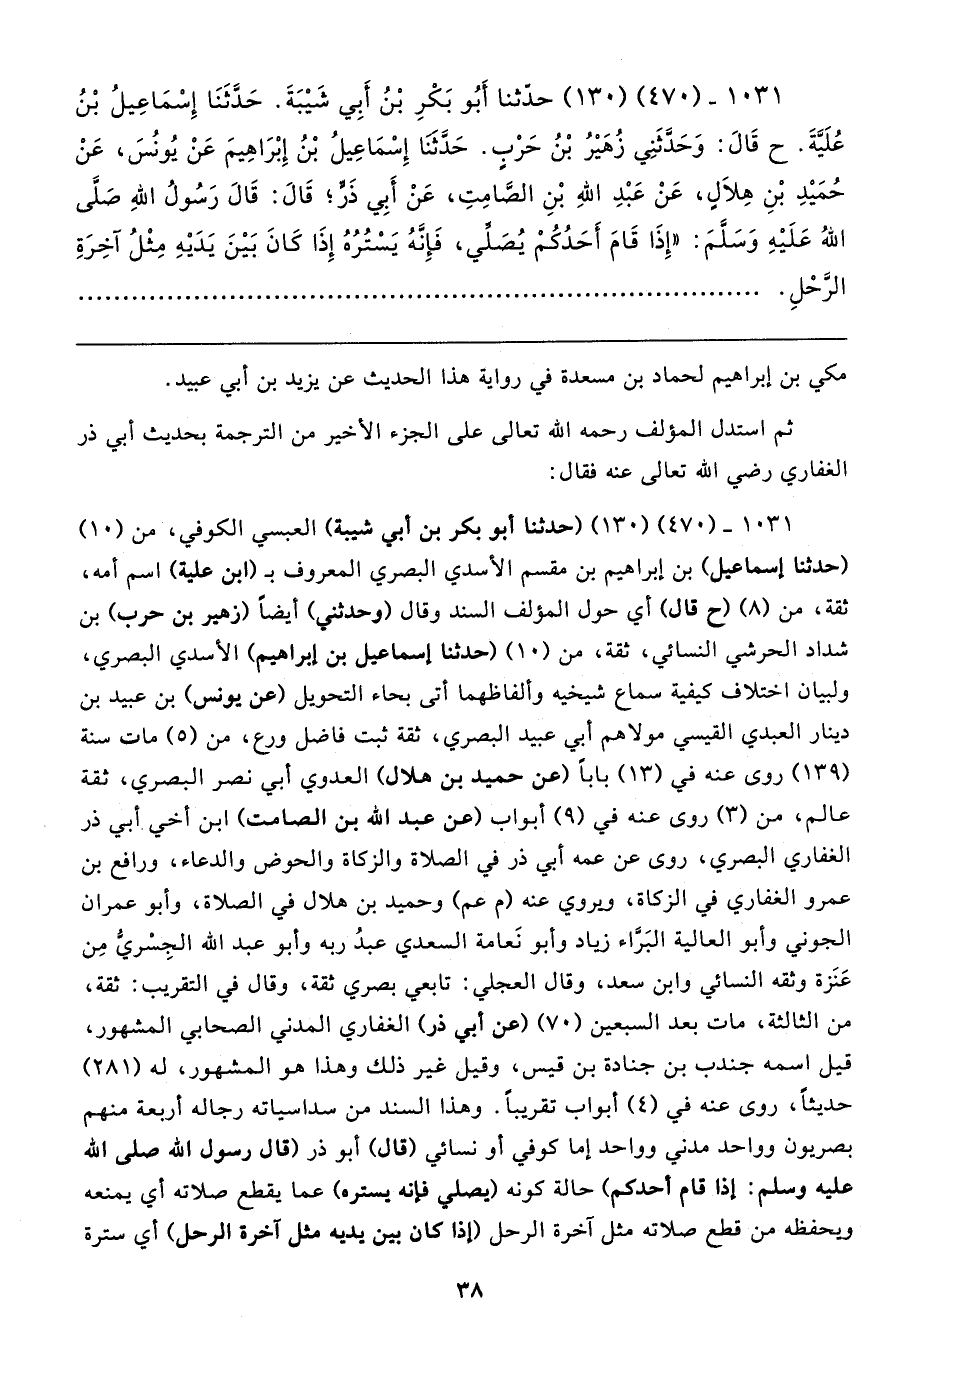 ١٠٣١ ـ (٤٧٠) (١٣٠) حدّثنا أَبُو بَكْرِ بْنُ أَبِي شَيْبَةَ. حَدَّثَنَا إِسْمَاعِيلُ بْنُ
عُلَيَّةَ. ح قَالَ: وَحَدَّثَنِي زُهَيْرُ بْنُ حَرْبٍ. حَدَّثَنَا إِسْمَاعِيلُ بْنُ إِبْرَاهِيمَ عَنْ يُونُسَ، عَنْ
حُمَيْدِ بْنِ هِلاَلٍ، عَنْ عَبْدِ اللهِ بْنِ الصَّامِتِ، عَنْ أَبِي ذَرٍّ؛ قَالَ: قَالَ رَسُولُ اللهِ صَلَّى
اللهُ عَلَيْهِ وَسَلَّمَ: «إِذَا قَامَ أَحَدُكُمْ يُصَلِّي، فَإِنَّهُ يَسْتُرُهُ إِذَا كَانَ بَيْنَ يَدَيْهِ مِثْلُ آخِرَةِ
الرَّحْلِ. ........................................................................
مكي بن إبراهيم لحماد بن مسعدة في رواية هذا الحديث عن يزيد بن أبي عبيد.
ثم استدل المؤلف رحمه الله تعالى على الجزء الأخير من الترجمة بحديث أبي ذر
الغفاري رضي الله تعالى عنه فقال:
١٠٣١ ـ (٤٧٠) (١٣٠) (حدثنا أبو بكر بن أبي شيبة) العبسي الكوفي، من (١٠)
(حدثنا إسماعيل) بن إبراهيم بن مقسم الأسدي البصري المعروف بـ (ابن علية) اسم أمه،
ثقة، من (٨) (ح قال) أي حول المؤلف السند وقال (وحدثني) أيضاً (زهير بن حرب) بن
شداد الحرشي النسائي، ثقة، من (١٠) (حدثنا إسماعيل بن إبراهيم) الأسدي البصري،
ولبيان اختلاف كيفية سماع شيخيه وألفاظهما أتى بحاء التحويل (عن يونس) بن عبيد بن
دينار العبدي القيسي مولاهم أبي عبيد البصري، ثقة ثبت فاضل ورع، من (٥) مات سنة
(١٣٩) روى عنه في (١٣) باباً (عن حميد بن هلال) العدوي أبي نصر البصري، ثقة
عالم، من (٣) روى عنه في (٩) أبواب (عن عبد الله بن الصامت) ابن أخي أبي ذر
الغفاري البصري، روى عن عمه أبي ذر في الصلاة والزكاة والحوض والدعاء، ورافع بن
عمرو الغفاري في الزكاة، ويروي عنه (م عم) وحميد بن هلال في الصلاة، وأبو عمران
الجوني وأبو العالية البَرَّاء زياد وأبو نَعامة السعدي عبدُ ربه وأبو عبد الله الجِسْريُّ مِن
عَنَزة وثقه النسائي وابن سعد، وقال العجلي: تابعي بصري ثقة، وقال في التقريب: ثقة،
من الثالثة، مات بعد السبعين (٧٠) (عن أبي ذر) الغفاري المدني الصحابي المشهور،
قيل اسمه جندب بن جنادة بن قيس، وقيل غير ذلك وهذا هو المشهور، له (٢٨١)
حديثاً، روى عنه في (٤) أبواب تقريباً. وهذا السند من سداسياته رجاله أربعة منهم
بصريون وواحد مدني وواحد إما كوفي أو نسائي (قال) أبو ذر (قال رسول الله صلى الله
عليه وسلم: إذا قام أحدكم) حالة كونه (يصلي فإنه يستره) عما يقطع صلاته أي يمنعه
ويحفظه من قطع صلاته مثل آخرة الرحل (إذا كان بين يديه مثل آخرة الرحل) أي سترة
٣٨